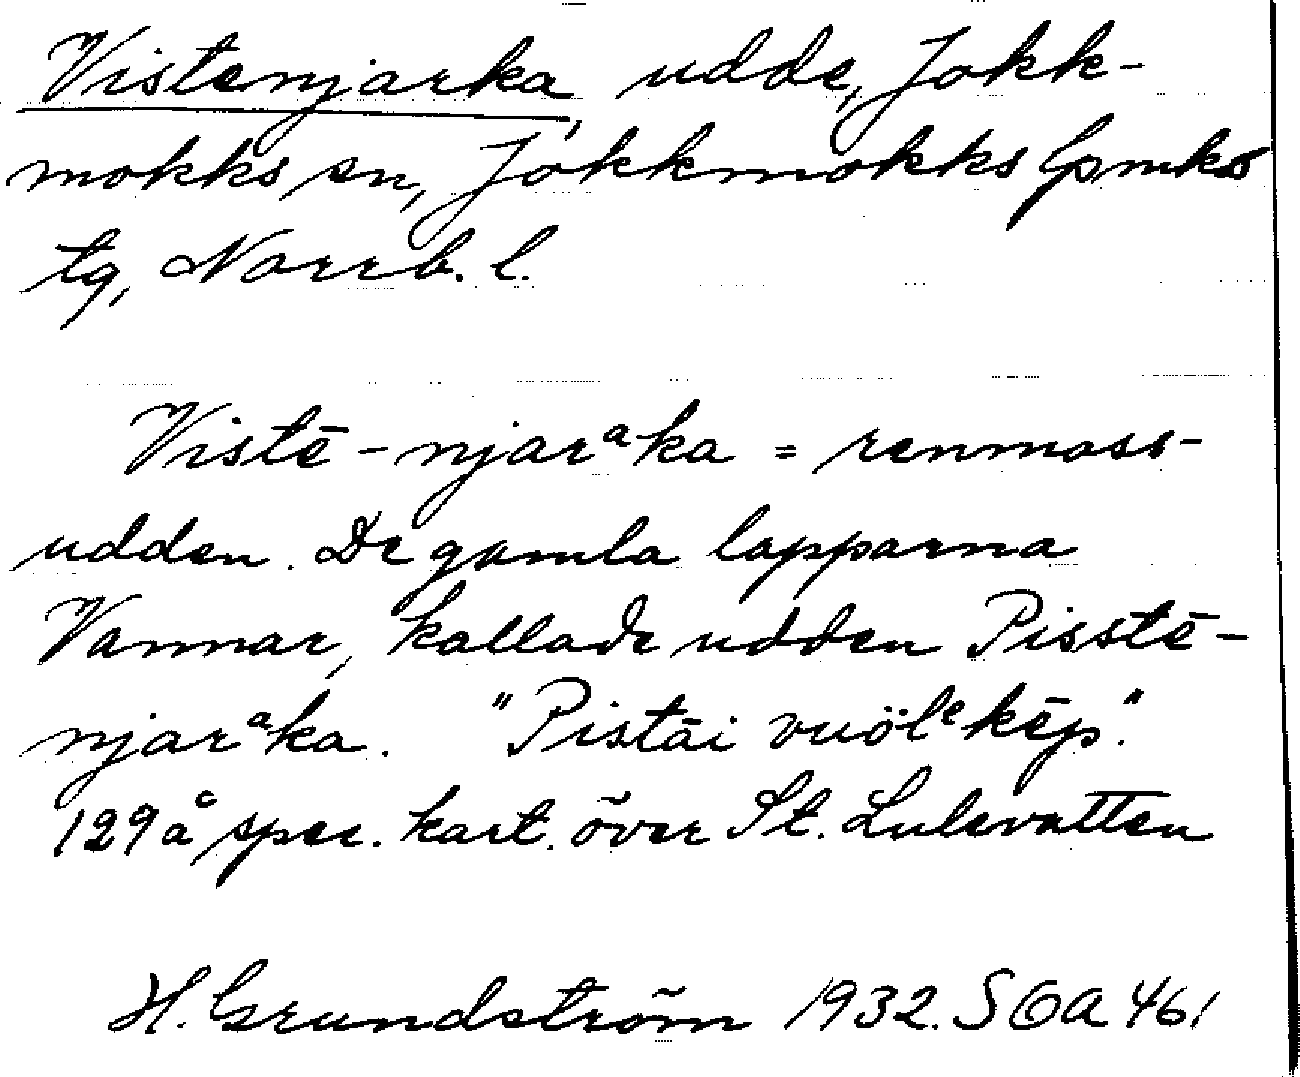 Vistenjarka, udde, Jokk-
mokks sn, Jokkmokks lpmks
tg, Norrb. l.
Vistē-njarᵃka = renmoss-
udden. De gamla lapparna
Vannar, kallade udden Pisstē-
njarᵃka. "Pistāi vuölᵉkēp."
129 å spec. kart. över St. Lulevatten
H. Grundström 1932. SOA 461